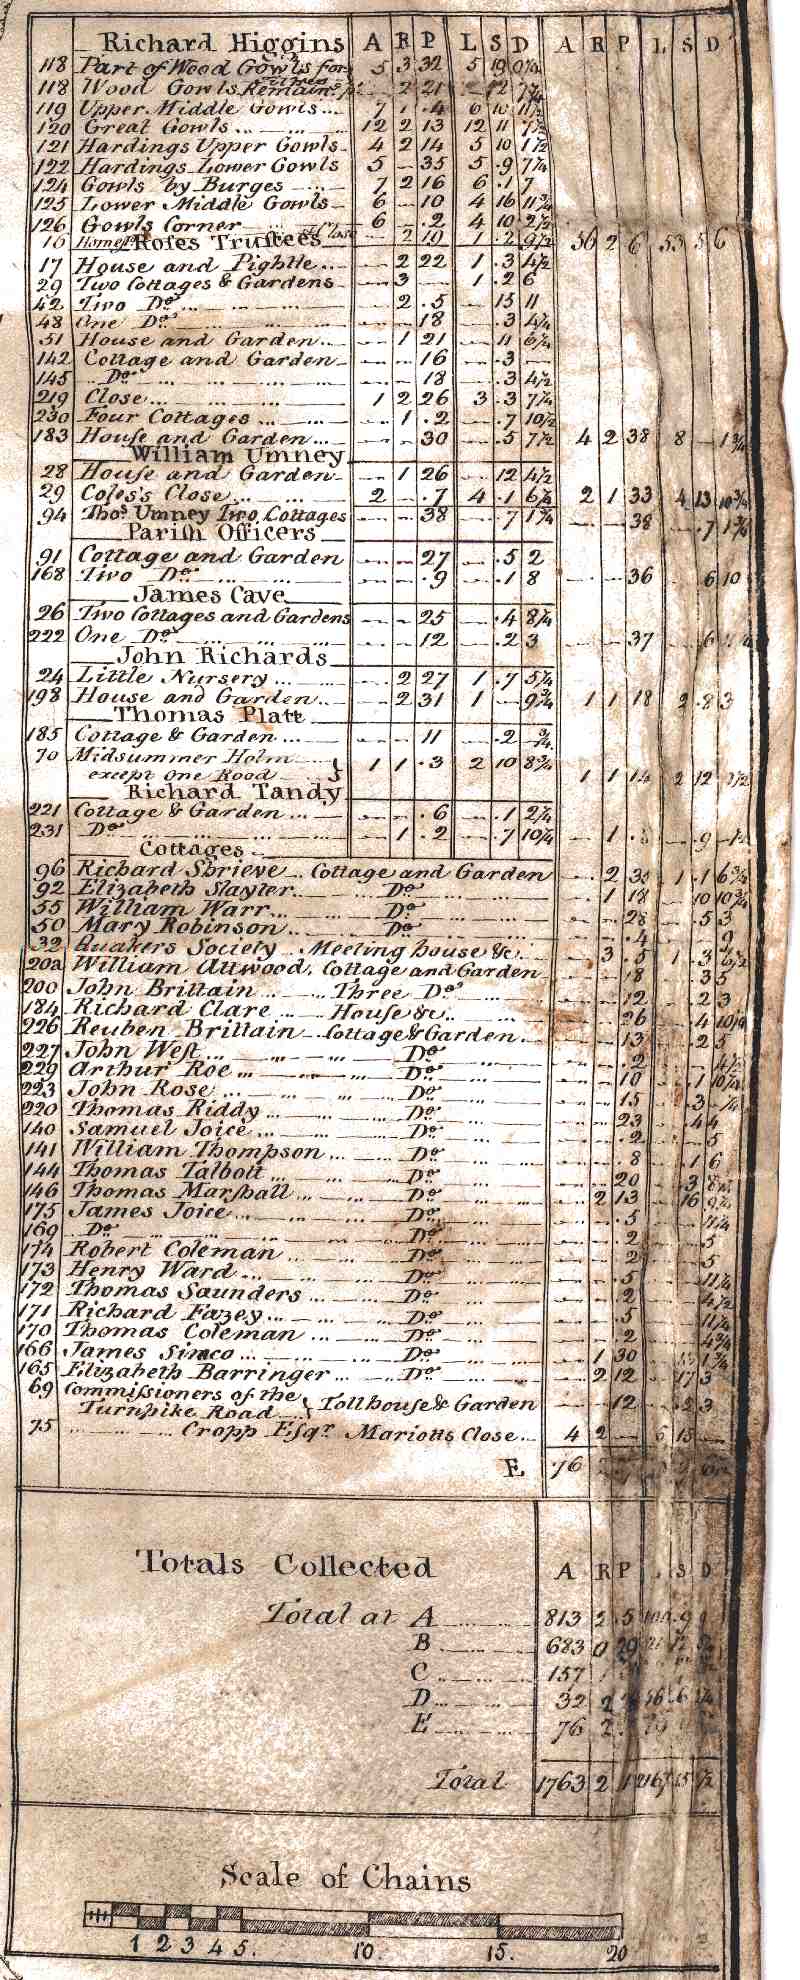 Richard Higgins A R P L S D A R P L S D
118 Part of Wood Gowls for 5 3 32 5 19
118 Wood Gowls Remaing 2 21 12
119 Upper Middle Gowls 7 1 .4 6 10
120 Great Gowls 12 2 13 12 11
121 Hardings Upper Gowls 4 2 14 5 10 1½
122 Hardings Lower Gowls 5 — 35 5 .9 7¼
124 Gowls by Burges 7 2 16 6 .1 7
125 Lower Middle Gowls 6 — 10 4 16 11¾
126 Gowls Corner 6 — .2 4 10 2½ 56 2 6 53 5 6
Roses Trustees
16 & Close 2 19 1 .2 9½
17 House and Pightle 2 22 1 .3 4½
29 Two Cottages & Gardens 3 — 1 .2 6
42 Two Do 2 .5 15 11
48 One Do 18 .3 4¾
51 House and Garden 1 21 11 6¾
142 Cottage and Garden 16 .3 —
145 Do 18 .3 4½
219 Close 1 2 26 3 .3 7¼
230 Four Cottages 1 .2 .7 10½
183 House and Garden 30 .5 7½ 4 2 38 8 — 1¾
William Umney
28 House and Garden 1 26 12 4½
29 Coles's Close 2 — .7 4 .1 6¼ 2 1 33 4 13 10¾
94 Thos Umney Two Cottages 38 .7 1¾ 38 .7 1¾
Parish Officers
91 Cottage and Garden 27 .5 2
168 Two Do .9 .1 8 36 6 10
James Cave
26 Two Cottages and Gardens 25 .4 8¼
222 One Do 12 .2 3 37
John Richards
24 Little Nursery 2 27 1 .7 5¼
198 House and Garden 2 31 1 — 9¾ 1 1 18 2 .8 3
Thomas Platt
185 Cottage & Garden 11 .2 —¾
70 Midsummer Holm
except One Rood } 1 1 .3 2 10 8¾ 1 1 14 2 12
Richard Tandy
221 Cottage & Garden .6 .1 2¼
231 Do 1 .2 .7 10¼ 1 .8 .9
Cottages
96 Richard Shrieve Cottage and Garden 2 1 .1 6¾
92 Elizabeth Slayter Do 1 18 10 10¾
55 William Warr Do 28 .5 3
50 Mary Robinson Do .4 9
32 Quakers Society Meeting house &c. 3 .5 1 .3 6½
20a William Attwood, Cottage and Garden 18 .3 5
200 John Brittain Three Do 12 .2 3
184 Richard Clare House &c. 26 .4 10½
226 Reuben Brittain Cottage & Garden 13 .2 5
227 John West Do .2 4½
229 Arthur Roe Do 10 .1 10¼
223 John Rose Do 15 .3 —¼
220 Thomas Riddy Do 23 .4 4
140 Samuel Joice Do .2 5
141 William Thompson Do .8 .1 6
144 Thomas Talbott Do 20 .3 8
146 Thomas Marshall Do 2 13 16 9¼
175 James Joice Do .5 11¼
169 Do Do .2 .5
174 Robert Coleman Do .2 5
173 Henry Ward Do .5 11¼
172 Thomas Saunders Do .2 4½
171 Richard Fazey Do .5 11¼
170 Thomas Coleman Do .2 4¾
166 James Simco Do 1 30 1¾
165 Elizabeth Barringer Do 2 12 17 3
69 Commissioners of the
Turnpike Road } Tollhouse & Garden 12 .2 3
75 Cropp Esqr Mariotts Close 4 2 — 6 15 —
E 76
Totals Collected A R P S D
Total at A 813 2 .5
B 683 0 29
C 157
D 32 2 56 .6
E 76 2
Total 1763 2 1 2167 15 ½
Scale of Chains
1 2 3 4 5. 10. 15. 20